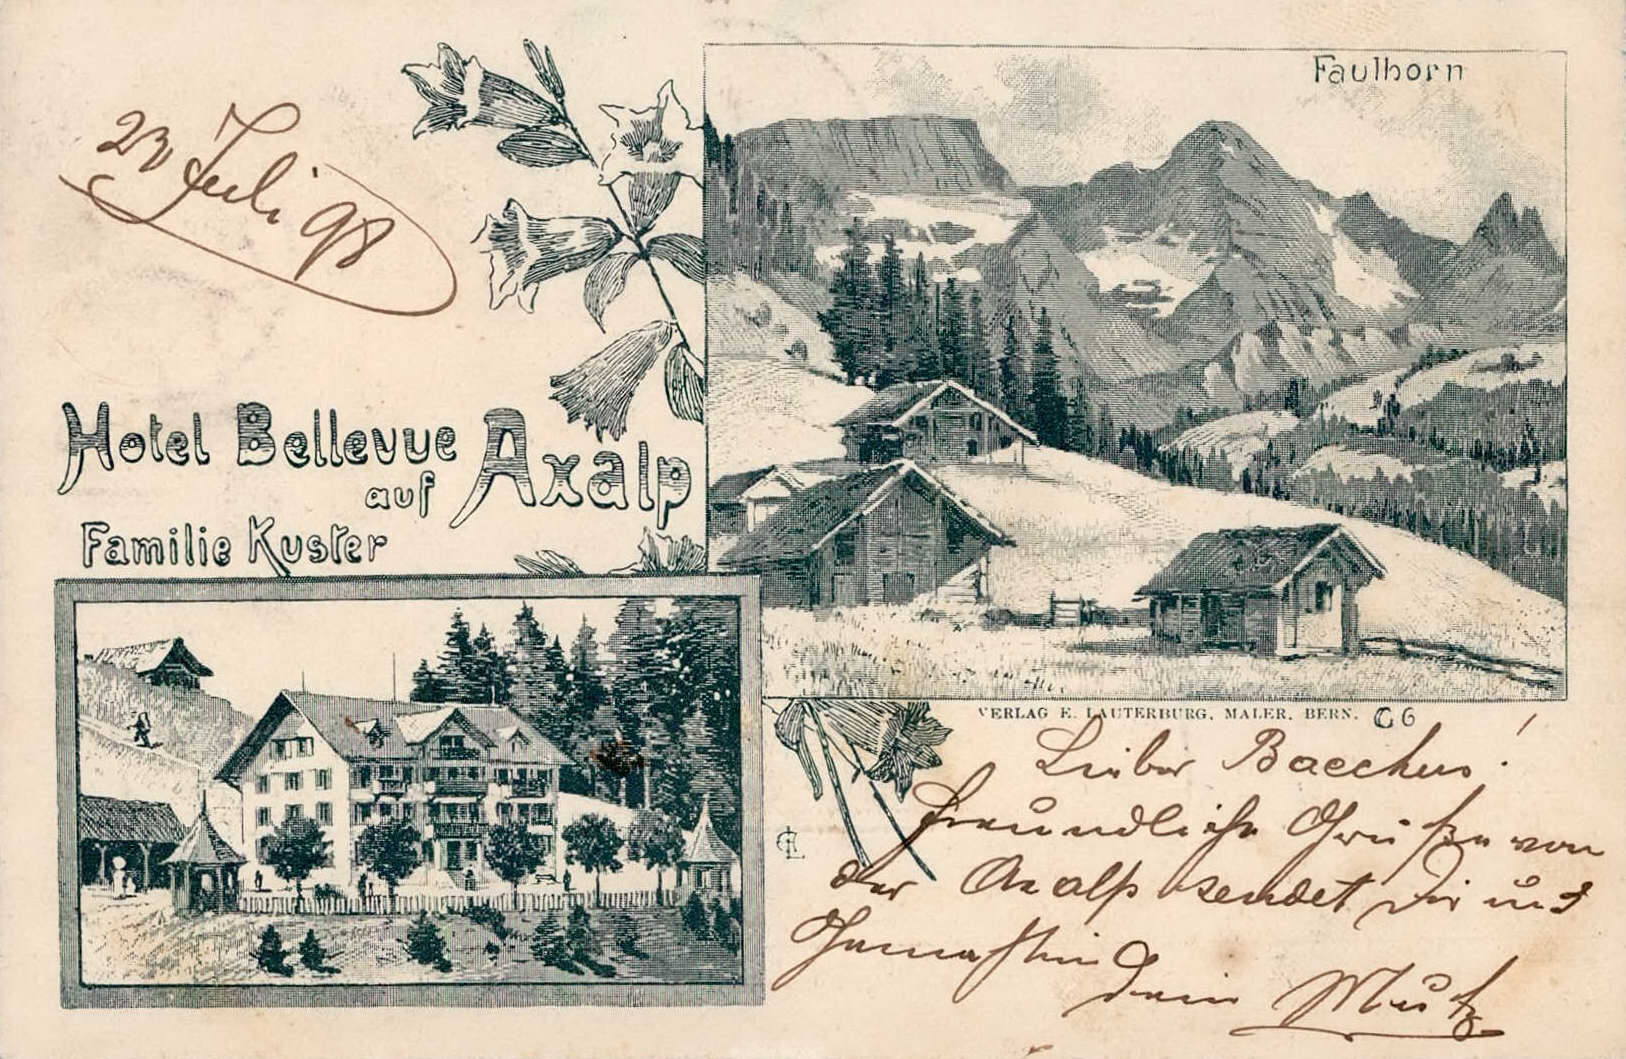 Faulhorn
23 Juli 98
Hotel Bellevue
auf Axalp
Familie Kuster
VERLAG E. LAUTERBURG, MALER, BERN. C 6
Lieber Bacchus!
Freundliche Grüße von
der Axalp sendet Dir und
Gemahlin
Dein Mutz